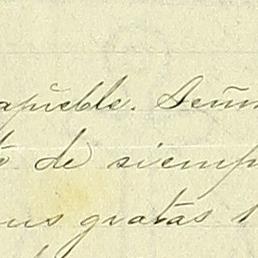 apueble. Señ
te de siemp
us gratas